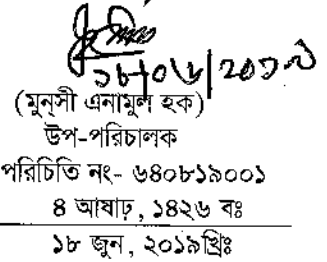 ১৮/০৬/২০১৯
(মুন্‌সী এনামুল হক)
উপ-পরিচালক
পরিচিতি নং- ৬৪০৮১৯০০১
৪ আষাঢ়, ১৪২৬ বঃ
১৮ জুন, ২০১৯খ্রিঃ